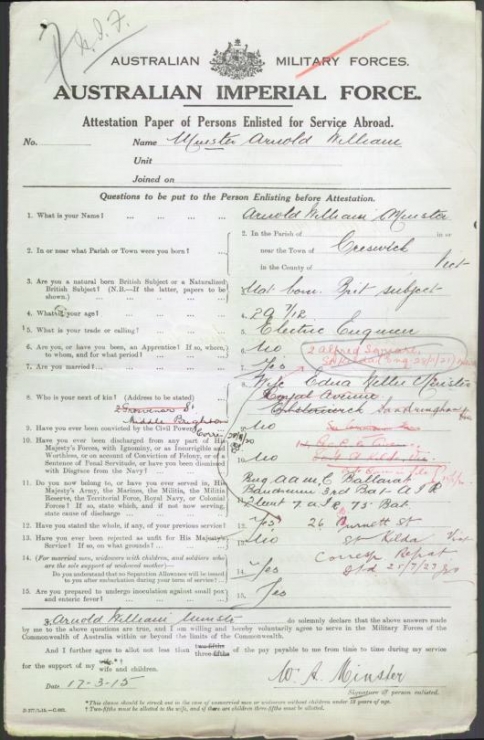 A.I.F.
AUSTRALIAN MILITARY FORCES.
AUSTRALIAN IMPERIAL FORCE.
Attestation Paper of Persons Enlisted for Service Abroad.
No. Name Minster Arnold William
Unit
Joined on
Questions to be put to the Person Enlisting before Attestation.
1. What is your Name? ... ... ... Arnold William Minster
2. In or near what Parish or Town were you born? ... 2. In the Parish of in or
near the Town of Creswick
in the County of Vict
3. Are you a natural born British Subject or a Naturalized British Subject? (N.B.—If the latter, papers to be shown.) ... Nat born Brit subject
4. What is your age? ... 4. 29 7/12
5. What is your trade or calling? ... 5. Electric Engineer
6. Are you, or have you been, an Apprentice? If so, where, to whom, and for what period? 6. No
2 Alfred Square,
7. Are you married? ... 7. Yes
8. Who is your next of kin? (Address to be stated) 8. Wife Edna Minster
Royal Avenue
Sandringham
2 Grosvenor St
Middle Brighton
9. Have you ever been convicted by the Civil Power? 9. No
10. Have you ever been discharged from any part of His Majesty's Forces, with Ignominy, or as Incorrigible and Worthless, or on account of Conviction of Felony, or of a Sentence of Penal Servitude, or have you been dismissed with Disgrace from the Navy? ... 10. No
11. Do you now belong to, or have you ever served in, His Majesty's Army, the Marines, the Militia, the Militia Reserve, the Territorial Force, Royal Navy, or Colonial Forces? If so, state which, and if not now serving, state cause of discharge ... Ballarat
3rd Bat A I R
2 Lieut 73 Bat.
12. Have you stated the whole, if any, of your previous service? 12. Yes
26 Burnett St
13. Have you ever been rejected as unfit for His Majesty's Service? If so, on what grounds? ... 13. No
St Kilda
Corresp Repat
14. (For married men, widowers with children, and soldiers who are the sole support of widowed mother)—
Do you understand that no Separation Allowance will be issued to you after embarkation during your term of service? 14. Yes
15. Are you prepared to undergo inoculation against small pox and enteric fever? 15. Yes
I, Arnold William Minster do solemnly declare that the above answers made
by me to the above questions are true, and I am willing and hereby voluntarily agree to serve in the Military Forces of the
Commonwealth of Australia within or beyond the limits of the Commonwealth.
And I further agree to allot not less than two-fifths three-fifths of the pay payable to me from time to time during my service
for the support of my wife *† wife and children.
W. A. Minster
Date 17-3-15 Signature of person enlisted.
*This clause should be struck out in the case of unmarried men or widowers without children under 18 years of age.
† Two-fifths must be allotted to the wife, and if there are children three-fifths must be allotted.